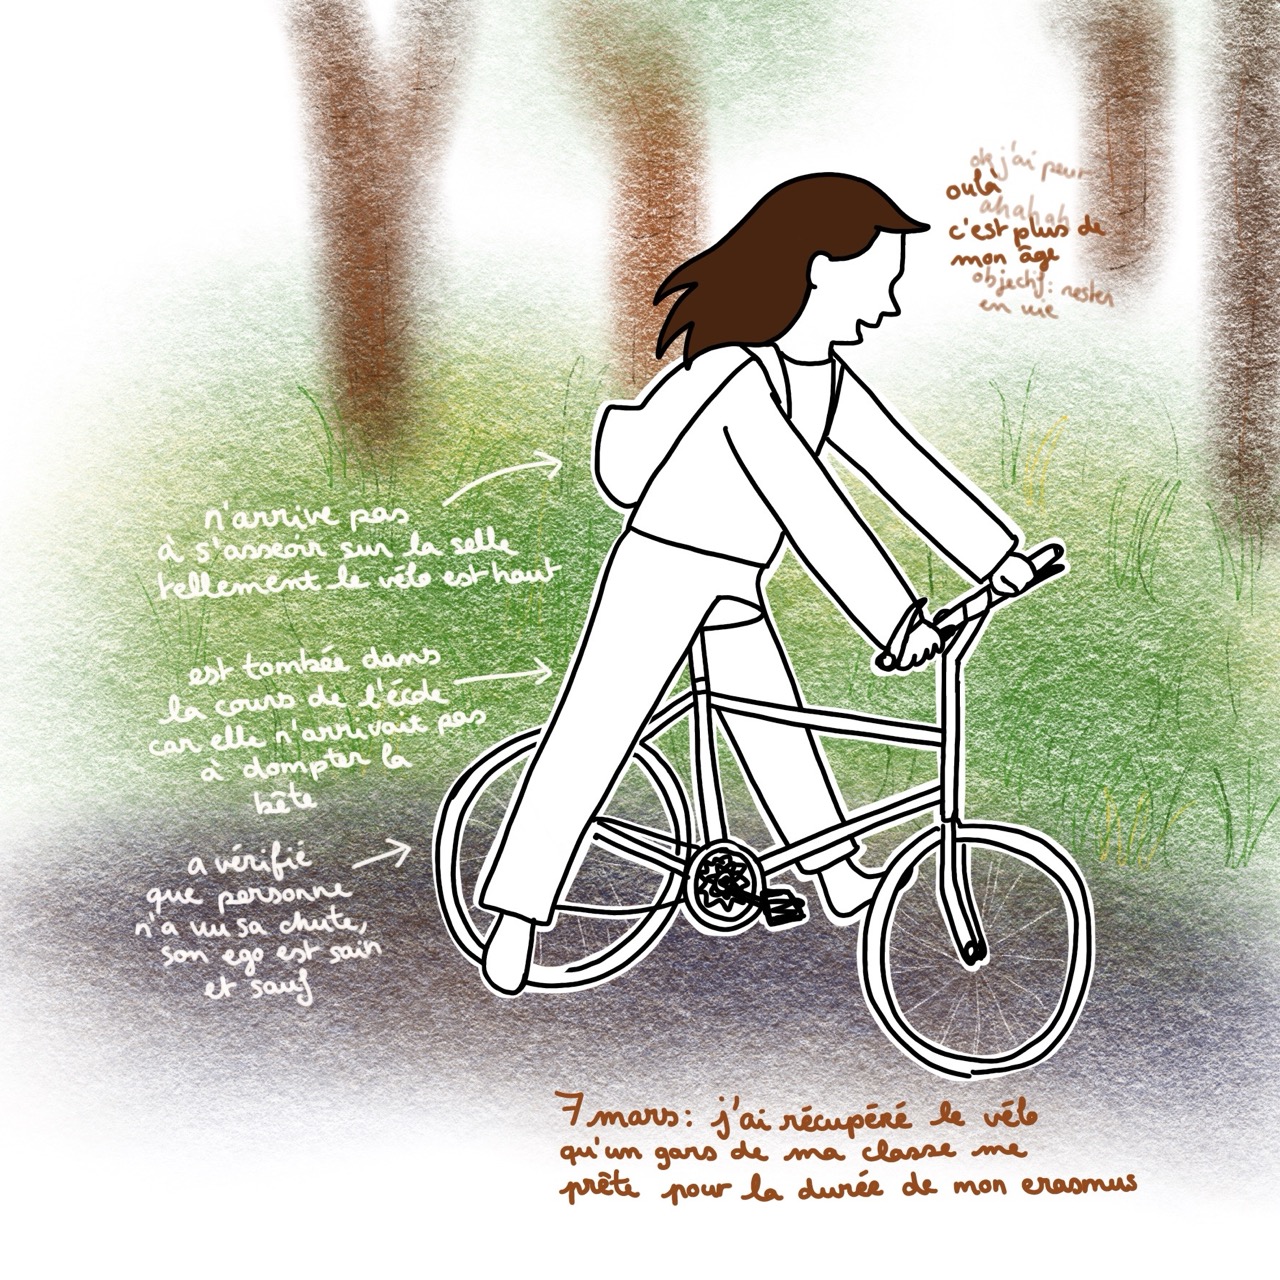 ok j'ai peur
oulà
ahahah
c'est plus de
mon âge
objectif: rester
en vie
n'arrive pas
à s'asseoir sur la selle
tellement le vélo est haut
est tombée dans
la cours de l'école
car elle n'arrivait pas
à dompter la
bête
a vérifié
que personne
n'a vu sa chute,
son ego est sain
et sauf
7 mars: j'ai récupéré le vélo
qu'un gars de ma classe me
prête pour la durée de mon erasmus